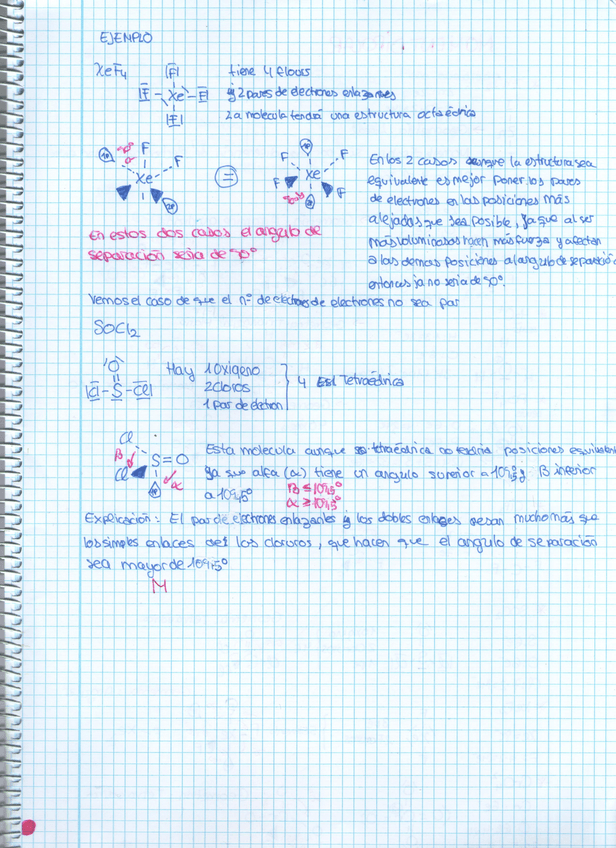 EJEMPLO
XeF4
tiene 4 fluors
y 2 pares de electrones enlazantes
La molecula tendrá una estructura octaédrica
|F|
|F - Xe - F|
|F|
F
F
Xe
90°
α
=
F
F
Xe
F
F
90°
En los 2 casos aunque la estructura sea
equivalente es mejor poner los pares
de electrones en las posiciones más
alejadas que sea posible, ya que al ser
más voluminosas hacen más fuerza y afectan
a las demas posiciones al angulo de separación
entonces ya no seria de 90°.
En estos dos casos el angulo de
separación seria de 90°
Vemos el caso de que el nº de electrones de electrones no sea par
SOCl2
O
||
|Cl - S - Cl|
Hay 1 Oxigeno
2 Cloros
1 Par de electron
4 Est Tetraédrica
Cl
β
S=O
Cl
α
Esta molecula aunque es tetraédrica no tendria posiciones equivalent
ya que alfa (α) tiene un angulo superior a 109,5 y β inferior
a 109,5°
β ≤ 109,5°
α ≥ 109,5°
Explicación: El par de electrones enlazantes y los dobles enlaces pesan mucho más que
los simples enlaces de los cloruros, que hacen que el angulo de separación
sea mayor de 109,5°
M